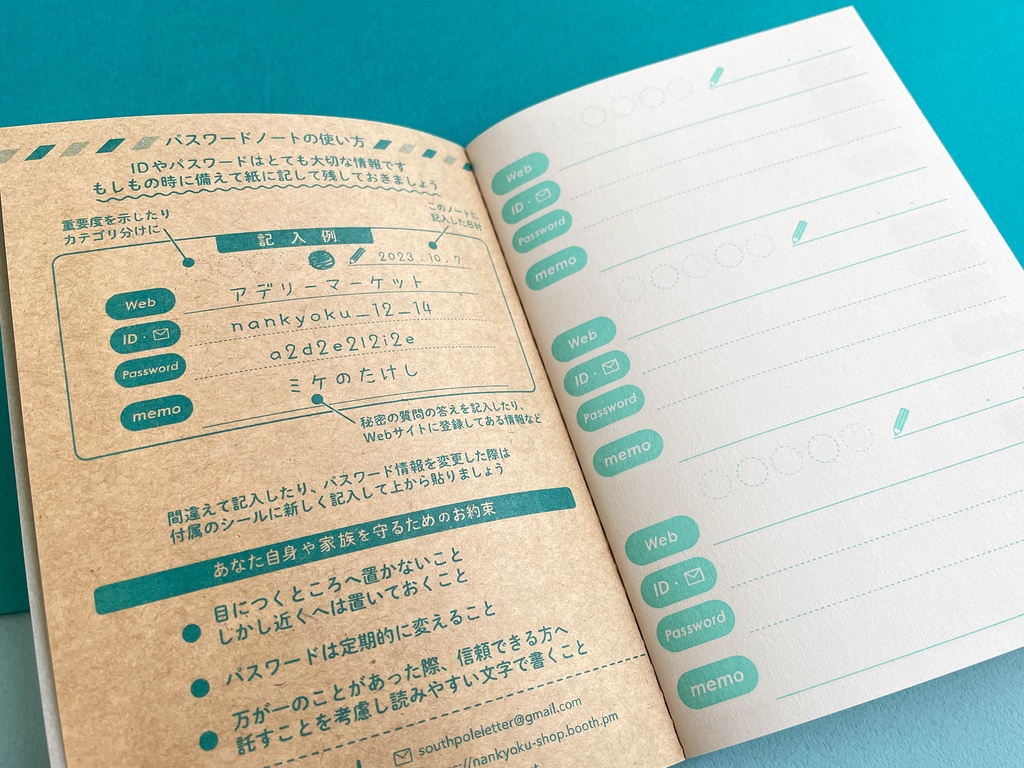 パスワードノートの使い方
IDやパスワードはとても大切な情報です
もしもの時に備えて紙に記して残しておきましょう
重要度を示したり
カテゴリ分けに
このノートに
記入した日付
記入例
2023.10.7
Web アデリーマーケット
ID・ nankyoku_12_14
Password a2d2e2l2i2e
memo ミケのたけし
秘密の質問の答えを記入したり、
Webサイトに登録してある情報など
間違えて記入したり、パスワード情報を変更した際は
付属のシールに新しく記入して上から貼りましょう
あなた自身や家族を守るためのお約束
目につくところへ置かないこと
しかし近くへは置いておくこと
パスワードは定期的に変えること
万が一のことがあった際、信頼できる方へ
託すことを考慮し読みやすい文字で書くこと
southpoleletter@gmail.com
://nankyoku-shop.booth.pm
Web
ID・
Password
memo
Web
ID・
Password
memo
Web
ID・
Password
memo